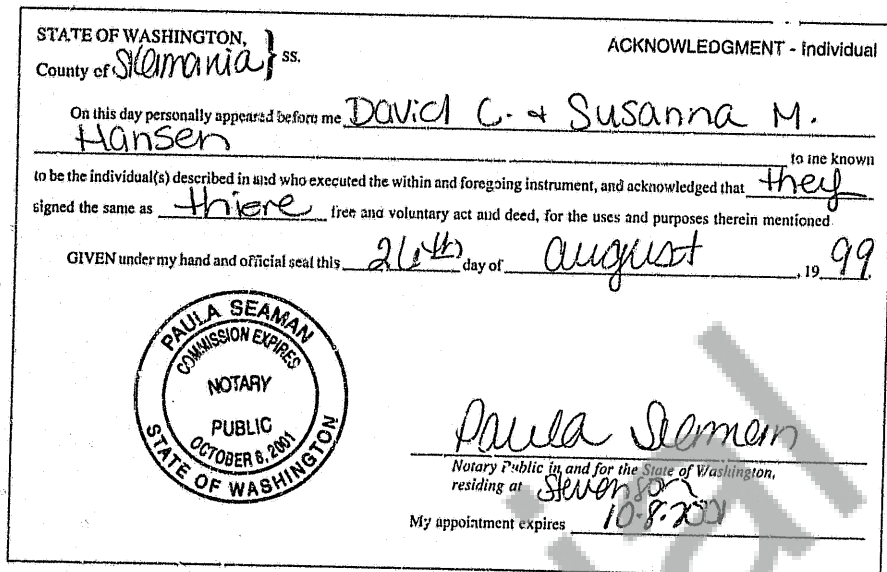 STATE OF WASHINGTON,
County of Skamania } ss.
ACKNOWLEDGMENT - Individual
On this day personally appeared before me David C. + Susanna M.
Hansen
to me known
to be the individual(s) described in and who executed the within and foregoing instrument, and acknowledged that they
signed the same as thiere free and voluntary act and deed, for the uses and purposes therein mentioned.
GIVEN under my hand and official seal this 26th day of august, 19 99
PAULA SEAMAN
COMMISSION EXPIRES
NOTARY
PUBLIC
OCTOBER 8, 2001
STATE OF WASHINGTON
Paula Seaman
Notary Public in and for the State of Washington,
residing at Stevenson
My appointment expires 10-8-2001